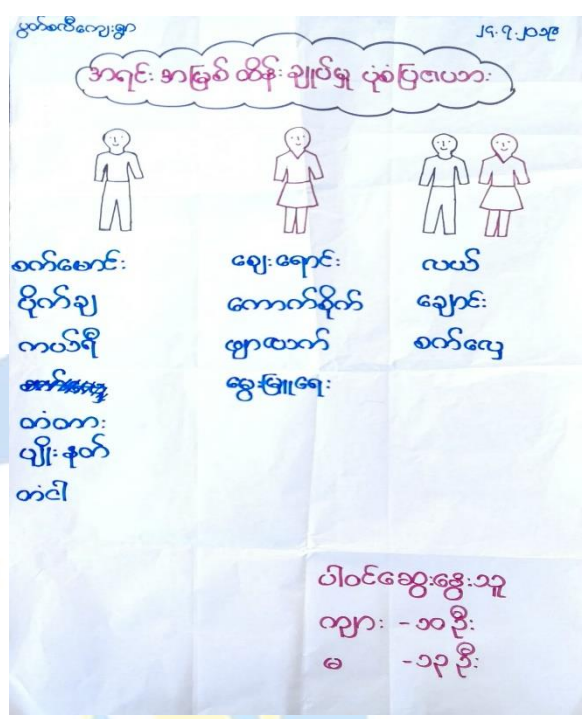 ပွတ်စလီကျေးရွာ
၂၄.၇.၂၀၁၉
အရင်းအမြစ် ထိန်းချုပ်မှု ပုံစံပြဇယား
စက်မောင်း
ပိုက်ချ
ကယ်ရီ
တံတား
ပျိုးနုတ်
တံငါ
ဈေးရောင်း
ကောက်စိုက်
ဖျာယက်
မွေးမြူရေး
လယ်
ချောင်း
စက်လှေ
ပါဝင်ဆွေးနွေးသူ
ကျား - ၁၀ ဦး
မ - ၁၃ ဦး